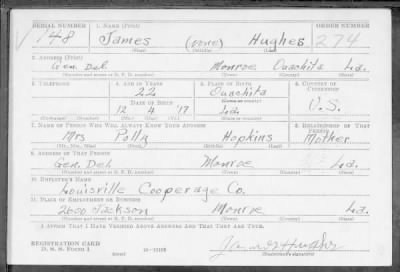 SERIAL NUMBER 1. NAME (Print) ORDER NUMBER
148 James (none) Hughes 274
(First) (Middle) (Last)
2. ADDRESS (Print)
Gen. Del. Monroe Ouachita La.
(Number and street or R. F. D. number) (Town) (County) (State)
3. TELEPHONE 4. AGE IN YEARS 5. PLACE OF BIRTH 6. COUNTRY OF CITIZENSHIP
22 Ouachita
DATE OF BIRTH (Town or county)
12 4 '17 La. U.S.
(Exchange) (Number) (Mo.) (Day) (Yr.) (State or country)
7. NAME OF PERSON WHO WILL ALWAYS KNOW YOUR ADDRESS 8. RELATIONSHIP OF THAT PERSON
Mrs Polly Hopkins Mother
(Mr., Mrs., Miss) (First) (Middle) (Last)
9. ADDRESS OF THAT PERSON
Gen. Del. Monroe La.
(Number and street or R. F. D. number) (Town) (County) (State)
10. EMPLOYER'S NAME
Louisville Cooperage Co.
11. PLACE OF EMPLOYMENT OR BUSINESS
2600 Jackson Monroe La.
(Number and street or R. F. D. number) (Town) (County) (State)
I AFFIRM THAT I HAVE VERIFIED ABOVE ANSWERS AND THAT THEY ARE TRUE.
REGISTRATION CARD
D. S. S. FORM 1 (over) (Registrant's signature)